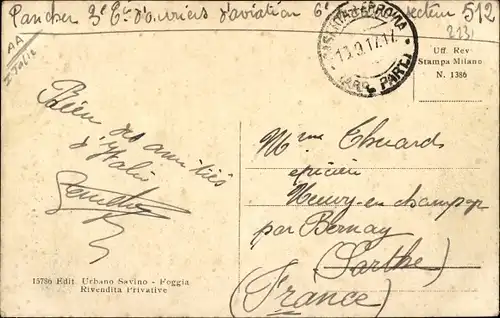 Pancher 3e Cie d'ouvriers d'aviation 6e secteur 512
AA
Italie
2131
FERROVIA
13.9.17.17
(ARR. PART.)
Uff. Rev.
Stampa Milano
N. 1386
Bien des amitiés
d'Italie
Mme Chuards
épicier
Neuvy-en-champagne
par Bernay
(Sarthe)
(France)
15786 Edit. Urbano Savino - Foggia
Rivendita Privative